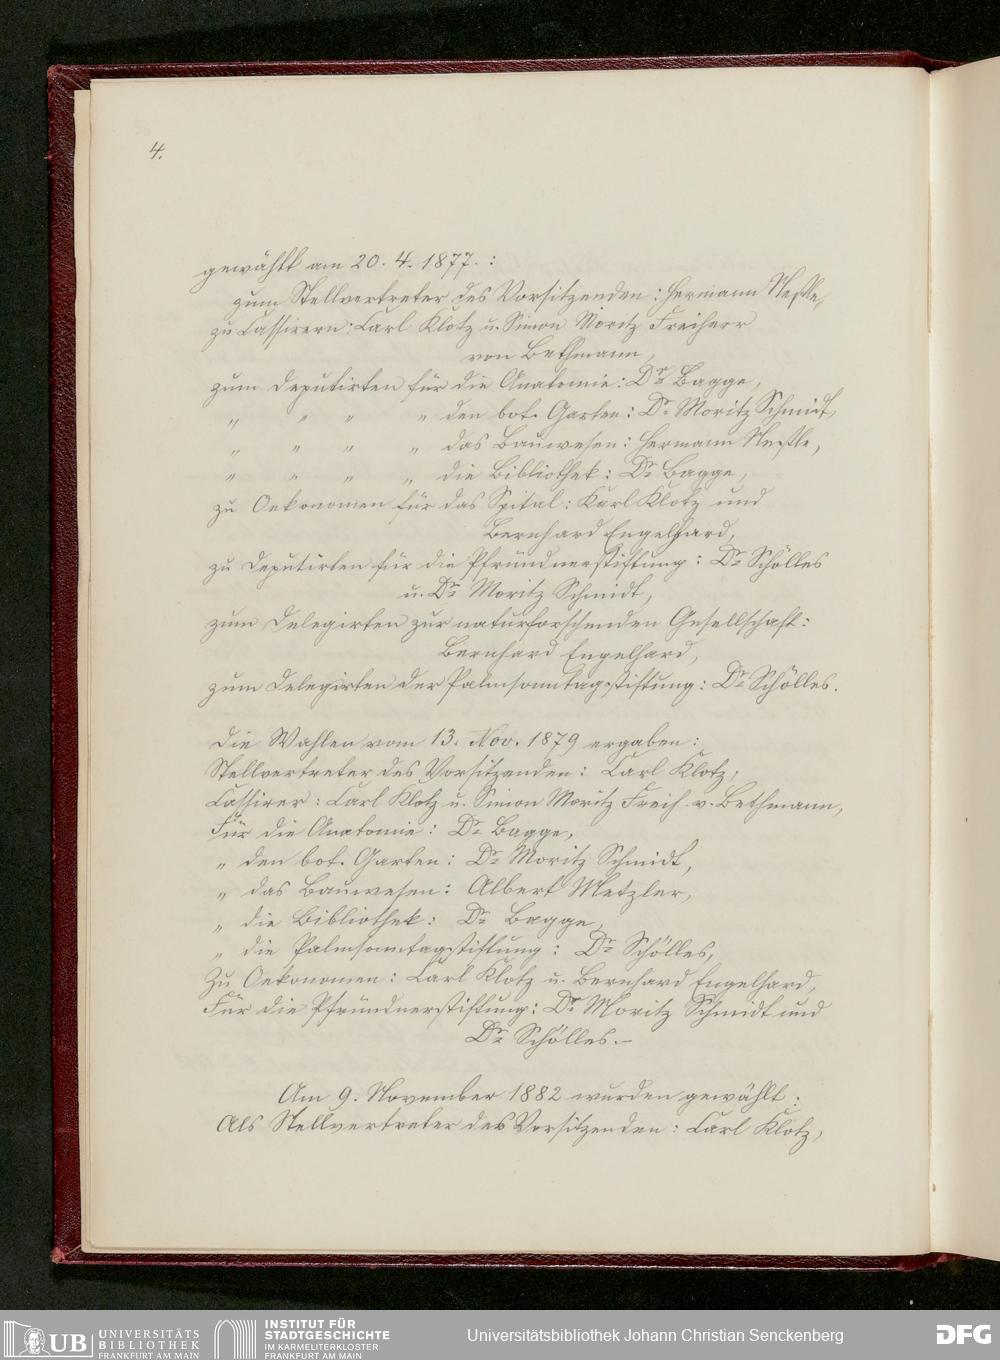 4.
gewählt am 20. 4. 1877. :
zum Stellvertreter des Vorsitzenden : Hermann Neſtle,
zu Cassirern : Carl Klotz u. Simon Moritz Freiherr
von Bethmann,
zum Deputirten für die Anatomie : Dr. Bagge,
" " " " den bot. Garten : Dr. Moritz Schmidt,
" " " " das Bauwesen : Hermann Neſtle,
" " " " die Bibliothek : Dr. Bagge,
zu Oekonomen für das Spital : Karl Klotz und
Bernhard Engelhard,
zu Deputirten für die Pfründnerstiftung : Dr. Schölles
u. Dr. Moritz Schmidt,
zum Delegirten zur naturforschenden Gesellschaft :
Bernhard Engelhard,
zum Delegirten der Palmsonntagsstiftung : Dr. Schölles.
Die Wahlen vom 13. Nov. 1879 ergaben :
Stellvertreter des Vorsitzenden : Carl Klotz,
Cassirer : Carl Klotz u. Simon Moritz Freih. v. Bethmann,
Für die Anatomie : Dr. Bagge,
" den bot. Garten : Dr. Moritz Schmidt,
" das Bauwesen : Albert Metzler,
" die Bibliothek : Dr. Bagge,
" die Palmsonntagsstiftung : Dr. Schölles,
Zu Oekonomen : Carl Klotz u. Bernhard Engelhard,
Für die Pfründnerstiftung : Dr. Moritz Schmidt und
Dr. Schölles. –
Am 9. November 1882 wurden gewählt :
Als Stellvertreter des Vorsitzenden : Carl Klotz,
UB UNIVERSITÄTS
BIBLIOTHEK
FRANKFURT AM MAIN
INSTITUT FÜR
STADTGESCHICHTE
IM KARMELITERKLOSTER
FRANKFURT AM MAIN
Universitätsbibliothek Johann Christian Senckenberg
DFG